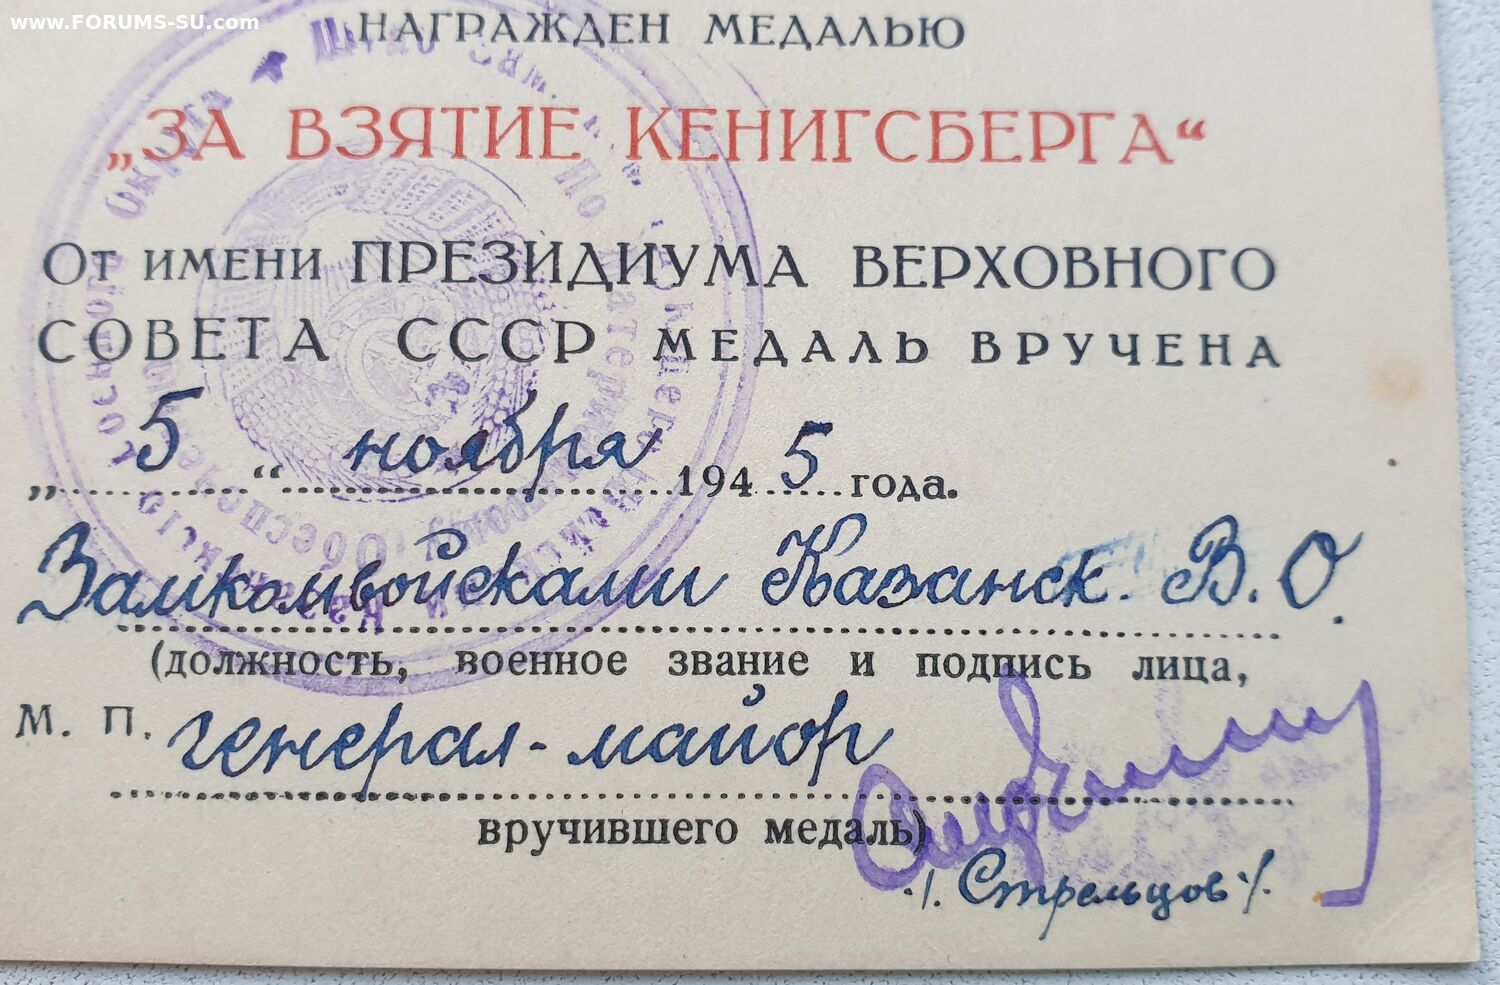 www.FORUMS-SU.com
НАГРАЖДЕН МЕДАЛЬЮ
„ЗА ВЗЯТИЕ КЕНИГСБЕРГА“
ОТ ИМЕНИ ПРЕЗИДИУМА ВЕРХОВНОГО
СОВЕТА СССР МЕДАЛЬ ВРУЧЕНА
„5“ ноября 1945 года.
Замкомвойсками Казанск. В. О.
(должность, военное звание и подпись лица,
М. П. генерал-майор
вручившего медаль)
·/. Стрельцов ·/.